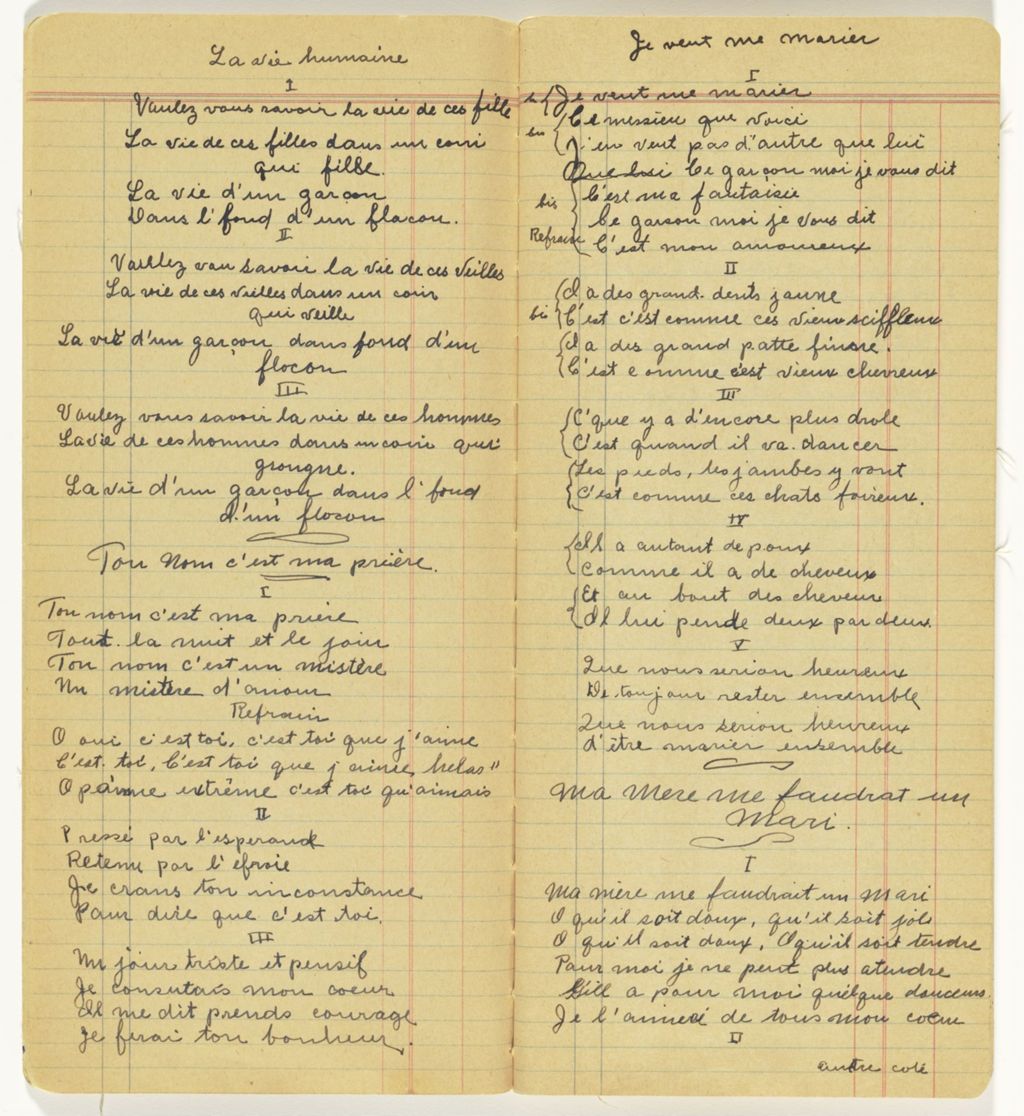 La vie humaine
I
Vaulez vous savoir la vie de ces fille
La vie de ces filles dans un coin
qui fille.
La vie d'un garçon
Dans l'fond d'un flacon.
II
Vaullez vou savoir la vie de ces Veilles
La vie de ces vieilles dans un coin
qui veille
La vie d'un garçon dans fond d'un
flocon
III
Vaulez vous savoir la vie de ces hommes
La vie de ces hommes dans un coin qui
grougne.
La vie d'un garçon dans l'fond
d'un flocon
Ton Nom c'est ma prière.
I
Ton nom c'est ma prière
Tout. la nuit et le jour
Ton nom c'est un mistère
Un mistère d'amour
Refrain
O oui c'est toi, c'est toi que j'aime
C'est. toi, C'est toi que j'aime, helas"
O peine extrême c'est toi qu'aimais
II
Pressé par l'esperand
Retenu par l'efroie
Je crans ton inconstance
Pour dire que c'est toi.
III
Un jour triste et pensif
Je consutais mon coeur
Il me dit prends courage
Je ferai ton bonheur.
Je veut me marier
I
Je veut me marier
bis Ce messieu que voici
J'en veut pas d'autre que lui
Ce garçon moi je vous dit
C'est ma fantaisie
bis Ce garson moi je vous dit
Refrain C'est mon amoureux
II
Il a des grand. dents jaune
bis C'est c'est comme ces vieux sciffleux
Il a des grand patte fine.
C'est comme c'est vieux chevreux
III
C'que y a d'encore plus drole
C'est quand il va. dancer
Les pieds, les jambes y vont
C'est comme ces chats foireux.
IV
Il a autant de poux
Comme il a de cheveux
Et au bout des cheveux
Il lui pende deux par deux.
V
Que nous serion heureux
De toujour rester ensemble
Que nous serion heureux
d'être marier ensemble
Ma Mere me faudrat un
Mari.
I
Ma mère me faudrait un Mari
O qu'il soit doux, qu'il soit joli
O qu'il soit doux, O qu'il soit tendre
Pour moi je ne peut plus atendre
Sill a pour moi quelque douceurs
Je l'aimerai de tous mon coeur
II
autre coté